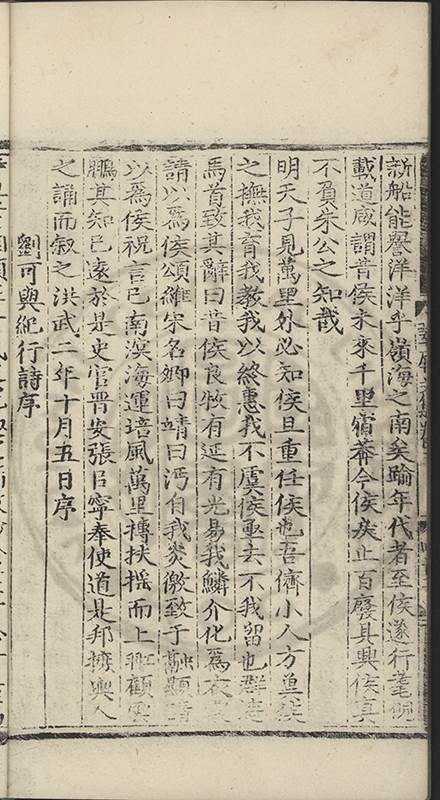 新船能譽洋洋乎嶺海之南矣踰年代者至侯遂行耄倪
載道咸謂昔侯未來千里蓁莽今侯矣止百廢具興侯真
不負朱公之知哉
明天子見萬里外必知侯且重任侯也吾儕小人方皇
之撫我育我教我以終惠我不虞侯亟去不我留也群
馬首致其辭曰昔侯良牧有延有光易我鱗介化爲衣
請以爲侯頌維宋名卿曰靖曰沔自我炎徼致于融顯
以爲侯祝言已南溟海運培風萬里摶扶搖而上 顧雲
鵬其知已遠於是史官晋安張㠯寧奉使道是邦摭輿人
之誦而叙之洪武二年十月五日序
劉可與紀行詩序